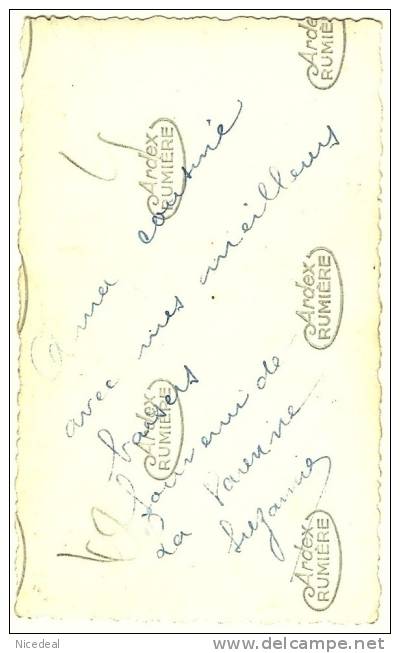 Ardex
RUMIÈRE
Ardex
RUMIÈRE
A ma cousine
avec mes meilleurs
baisers
Souvenir de
La Varenne
Suzanne
Ardex
RUMIÈRE
Ardex
RUMIÈRE
Ardex
RUMIÈRE
Nicedeal
http://www.delcampe.net